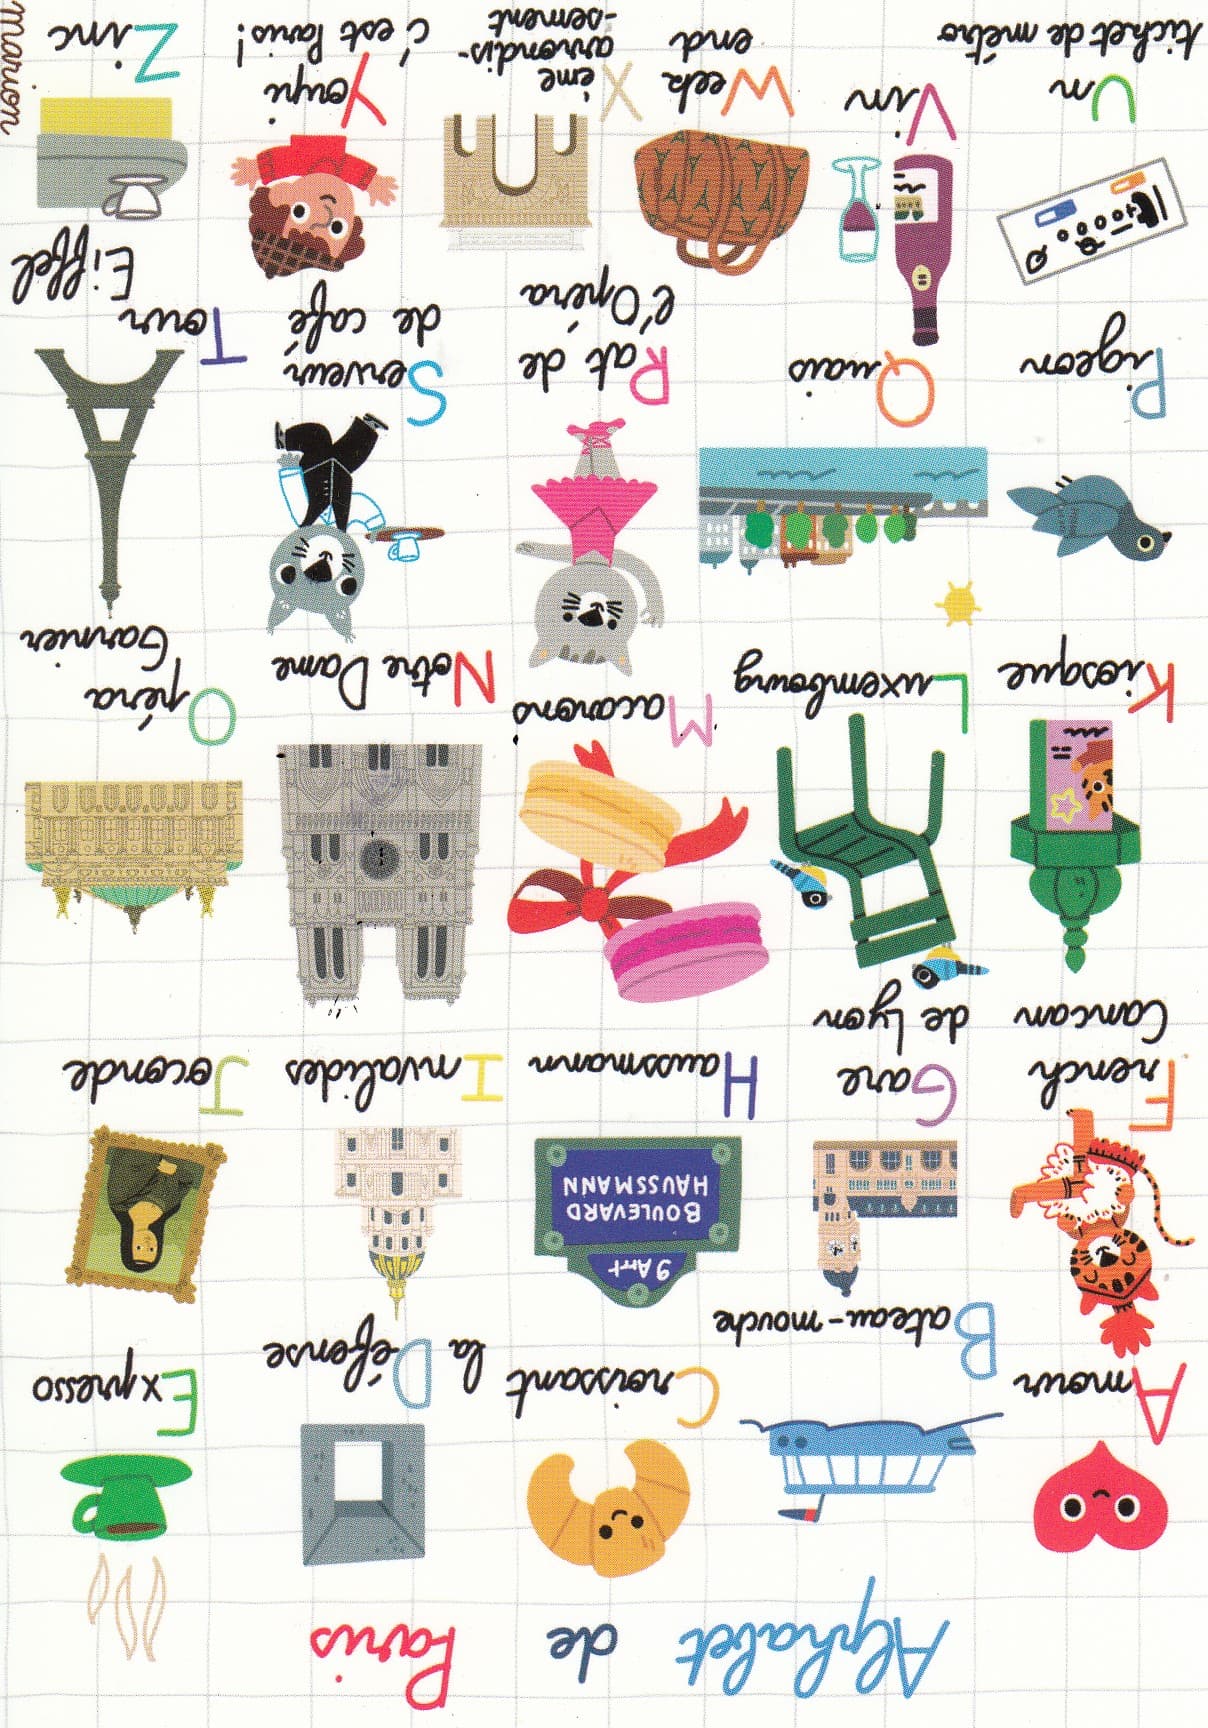 Alphabet de Paris
Amour
Bateau-mouche
Croissant
la Défense
Expresso
9 Arrt
BOULEVARD
HAUSSMANN
French
Cancan
Gare
de Lyon
Haussmann
Invalides
Joconde
Kiosque
Luxembourg
Macarons
Notre Dame
Opéra
Garnier
Pigeon
Quais
Rat de
l'Opéra
Serveur
de café
Tour
Eiffel
Un
ticket de métro
Vin
Week
end
Xème
arrondis-
-sement
Youpi
c'est Paris !
Zinc